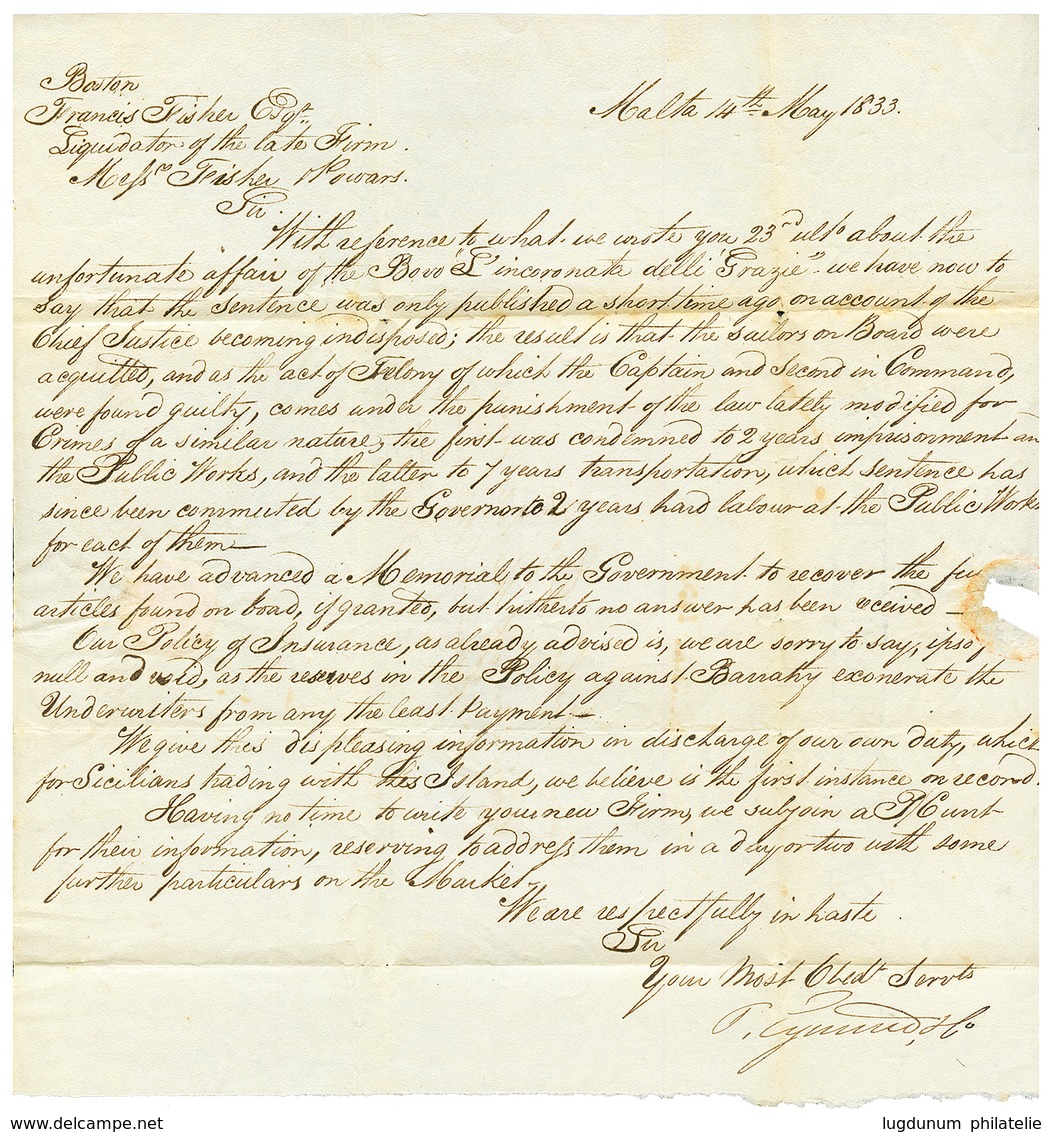 Boston
Francis Fisher Esqr.,
Malta 14th May 1833.
Liquidator of the late Firm.
Messrs Fisher & Powars.
Sir.
With reference to what we wrote you 23rd ulto about the
unfortunate affair of the Bovo "L'incoronata delli Grazie" we have now to
say that the sentence was only published a short time ago on account of the
Chief Justice becoming indisposed; the result is that the sailors on Board were
acquitted, and as the act of Felony of which the Captain and Second in Command,
were found guilty, comes under the punishment of the law lately modified for
Crimes of a similar nature, the first was condemned to 2 years imprisonment an
the Public Works, and the latter to 7 years transportation, which sentence has
since been commuted by the Governor to 2 years hard labour at the Public Works
for each of them—
We have advanced a Memorial, to the Government to recover the
articles found on boad, if granted, but hitherto no answer has been received—
Our Policy of Insurance, as already advised is, we are sorry to say, ipso
null and void, as the reserves in the Policy against Barratry exonerate the
Underwriters from any the least Payment—
We give this displeasing information in discharge of our own duty, which
for Sicilians trading with this Island, we believe is the first instance on record.
Having no time to write your new Firm, we subjoin a
for their information, reserving to address them in a day or two with some
further particulars on the Market—
We are respectfully in haste.
Sir
Your Most Obedt Servts
& Co
www.delcampe.net
lugdunum philatelie